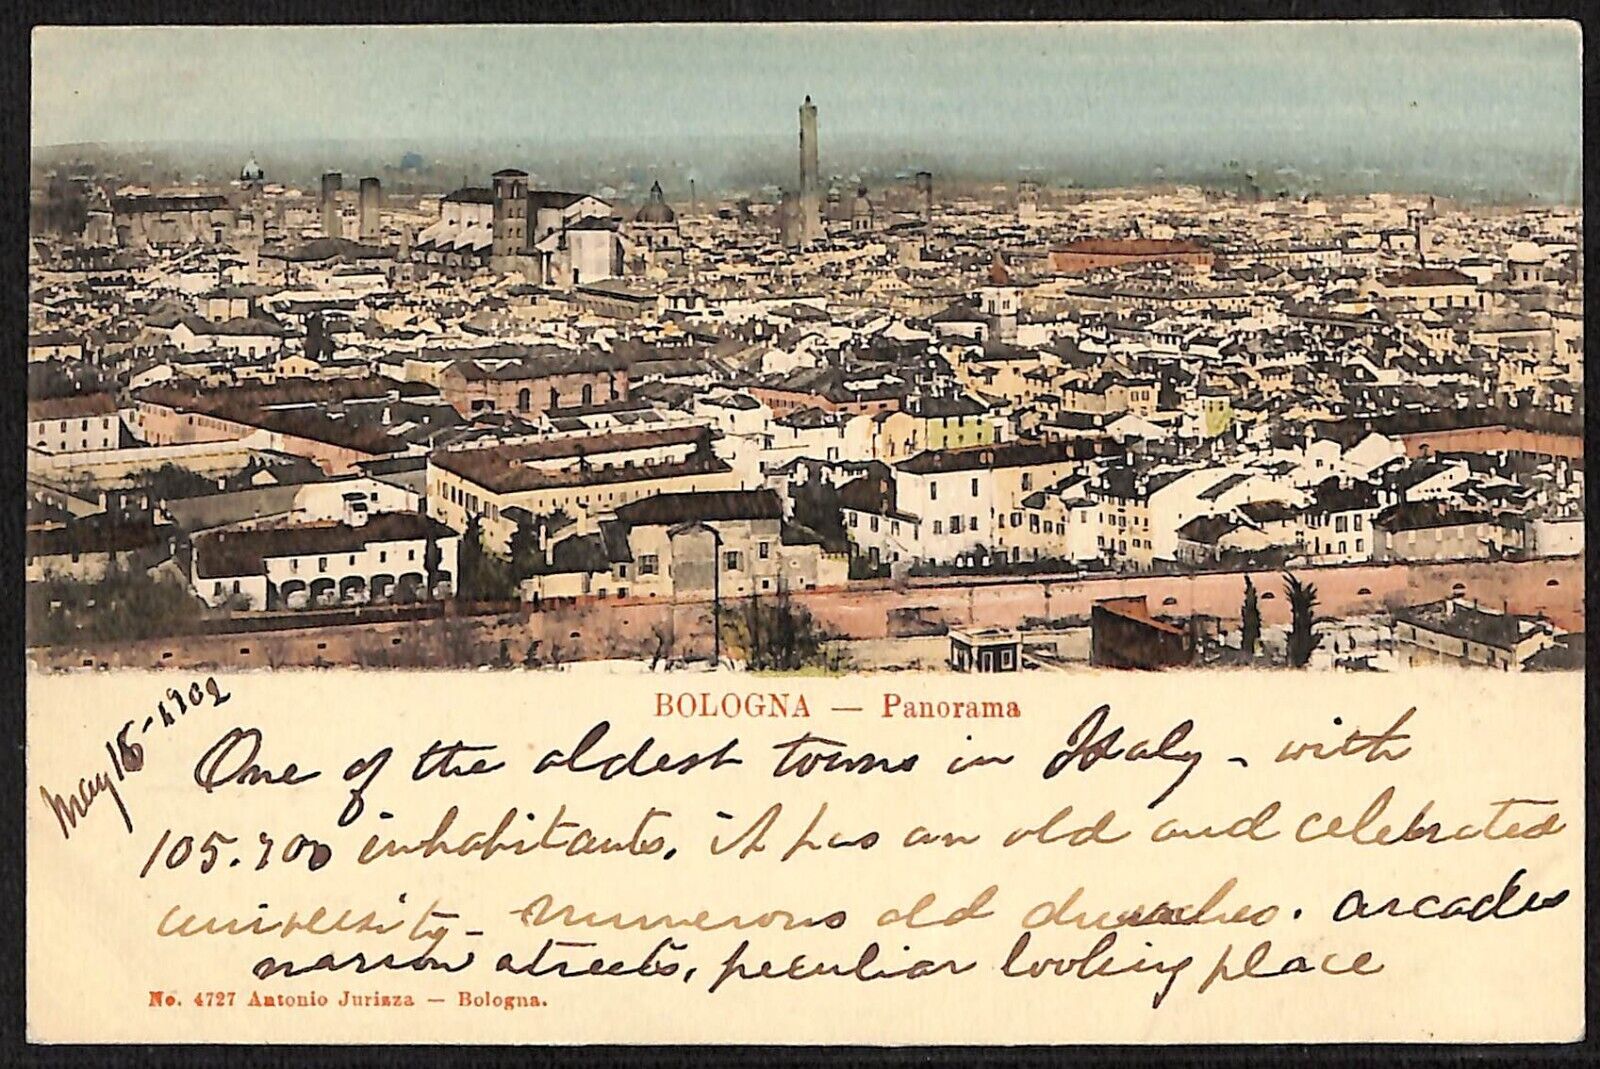 BOLOGNA — Panorama
May 16 - 1902
One of the oldest towns in Italy - with
105.700 inhabitants, it has an old and celebrated
university - numerous old churches. arcades
narrow streets, peculiar looking place
No. 4727 Antonio Jurizza — Bologna.